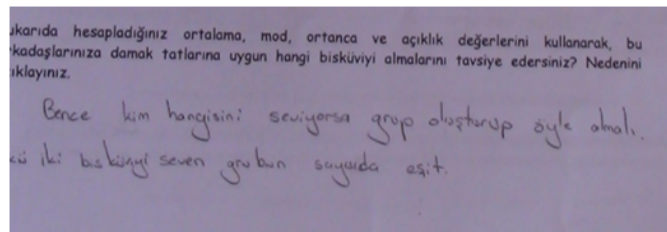 ukarıda hesapladığınız ortalama, mod, ortanca ve açıklık değerlerini kullanarak, bu
kadaşlarınıza damak tatlarına uygun hangi bisküviyi almalarını tavsiye edersiniz? Nedenini
ıklayınız.
Bence kim hangisini seviyorsa grup oluşturup öyle almalı.
kü iki bisküviyi seven grubun sayısıda eşit.